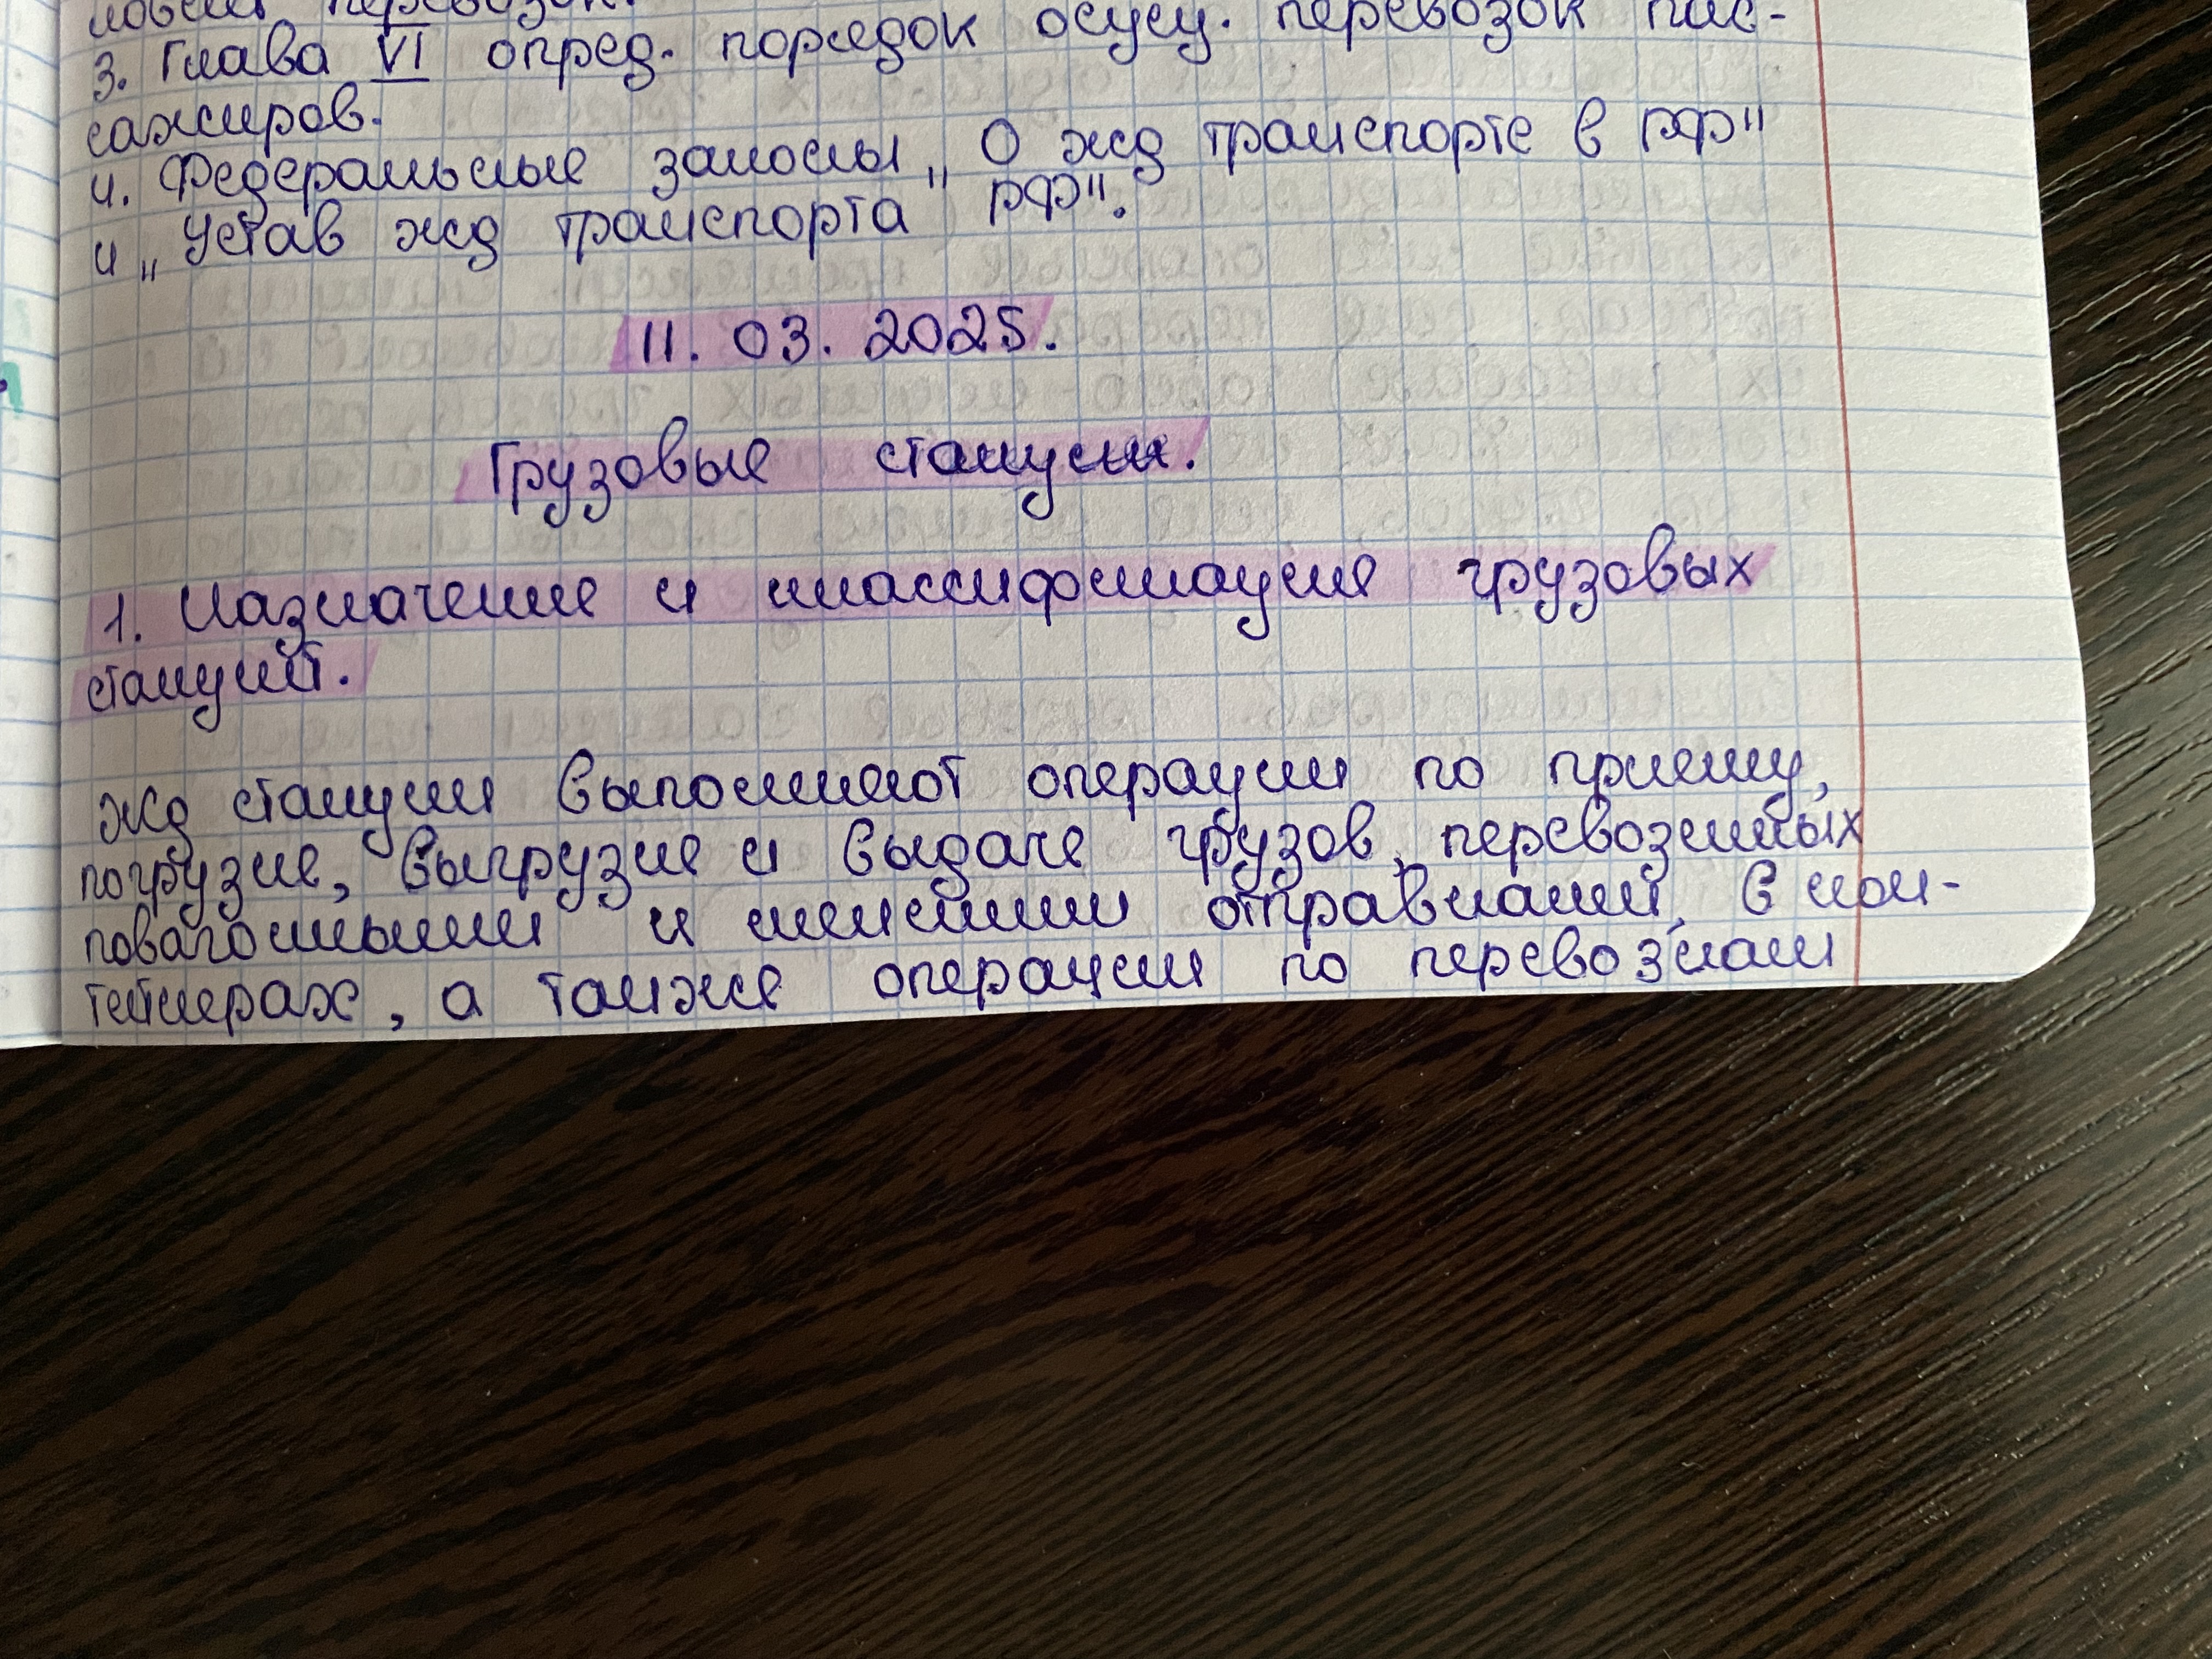 перевозок.
3. Глава VI опред. порядок осущ. перевозок пас-
сажиров.
4. Федеральные законы „О жд транспорте в РФ"
и „Устав жд транспорта РФ".
11. 03. 2025.
Грузовые станции.
1. Назначение и классификация грузовых
станций.
Жд станции выполняют операции по приему,
погрузке, выгрузке и выдаче грузов, перевозимых
повагонными и мелкими отправками, в кон-
тейнерах, а также операции по перевозкам